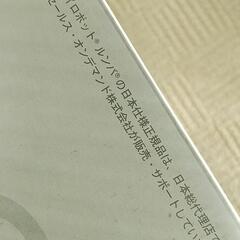 イロボット®ルンバ®の日本仕様正規品は、日本総代理店で
セールス・オンデマンド株式会社が販売・サポートしてい